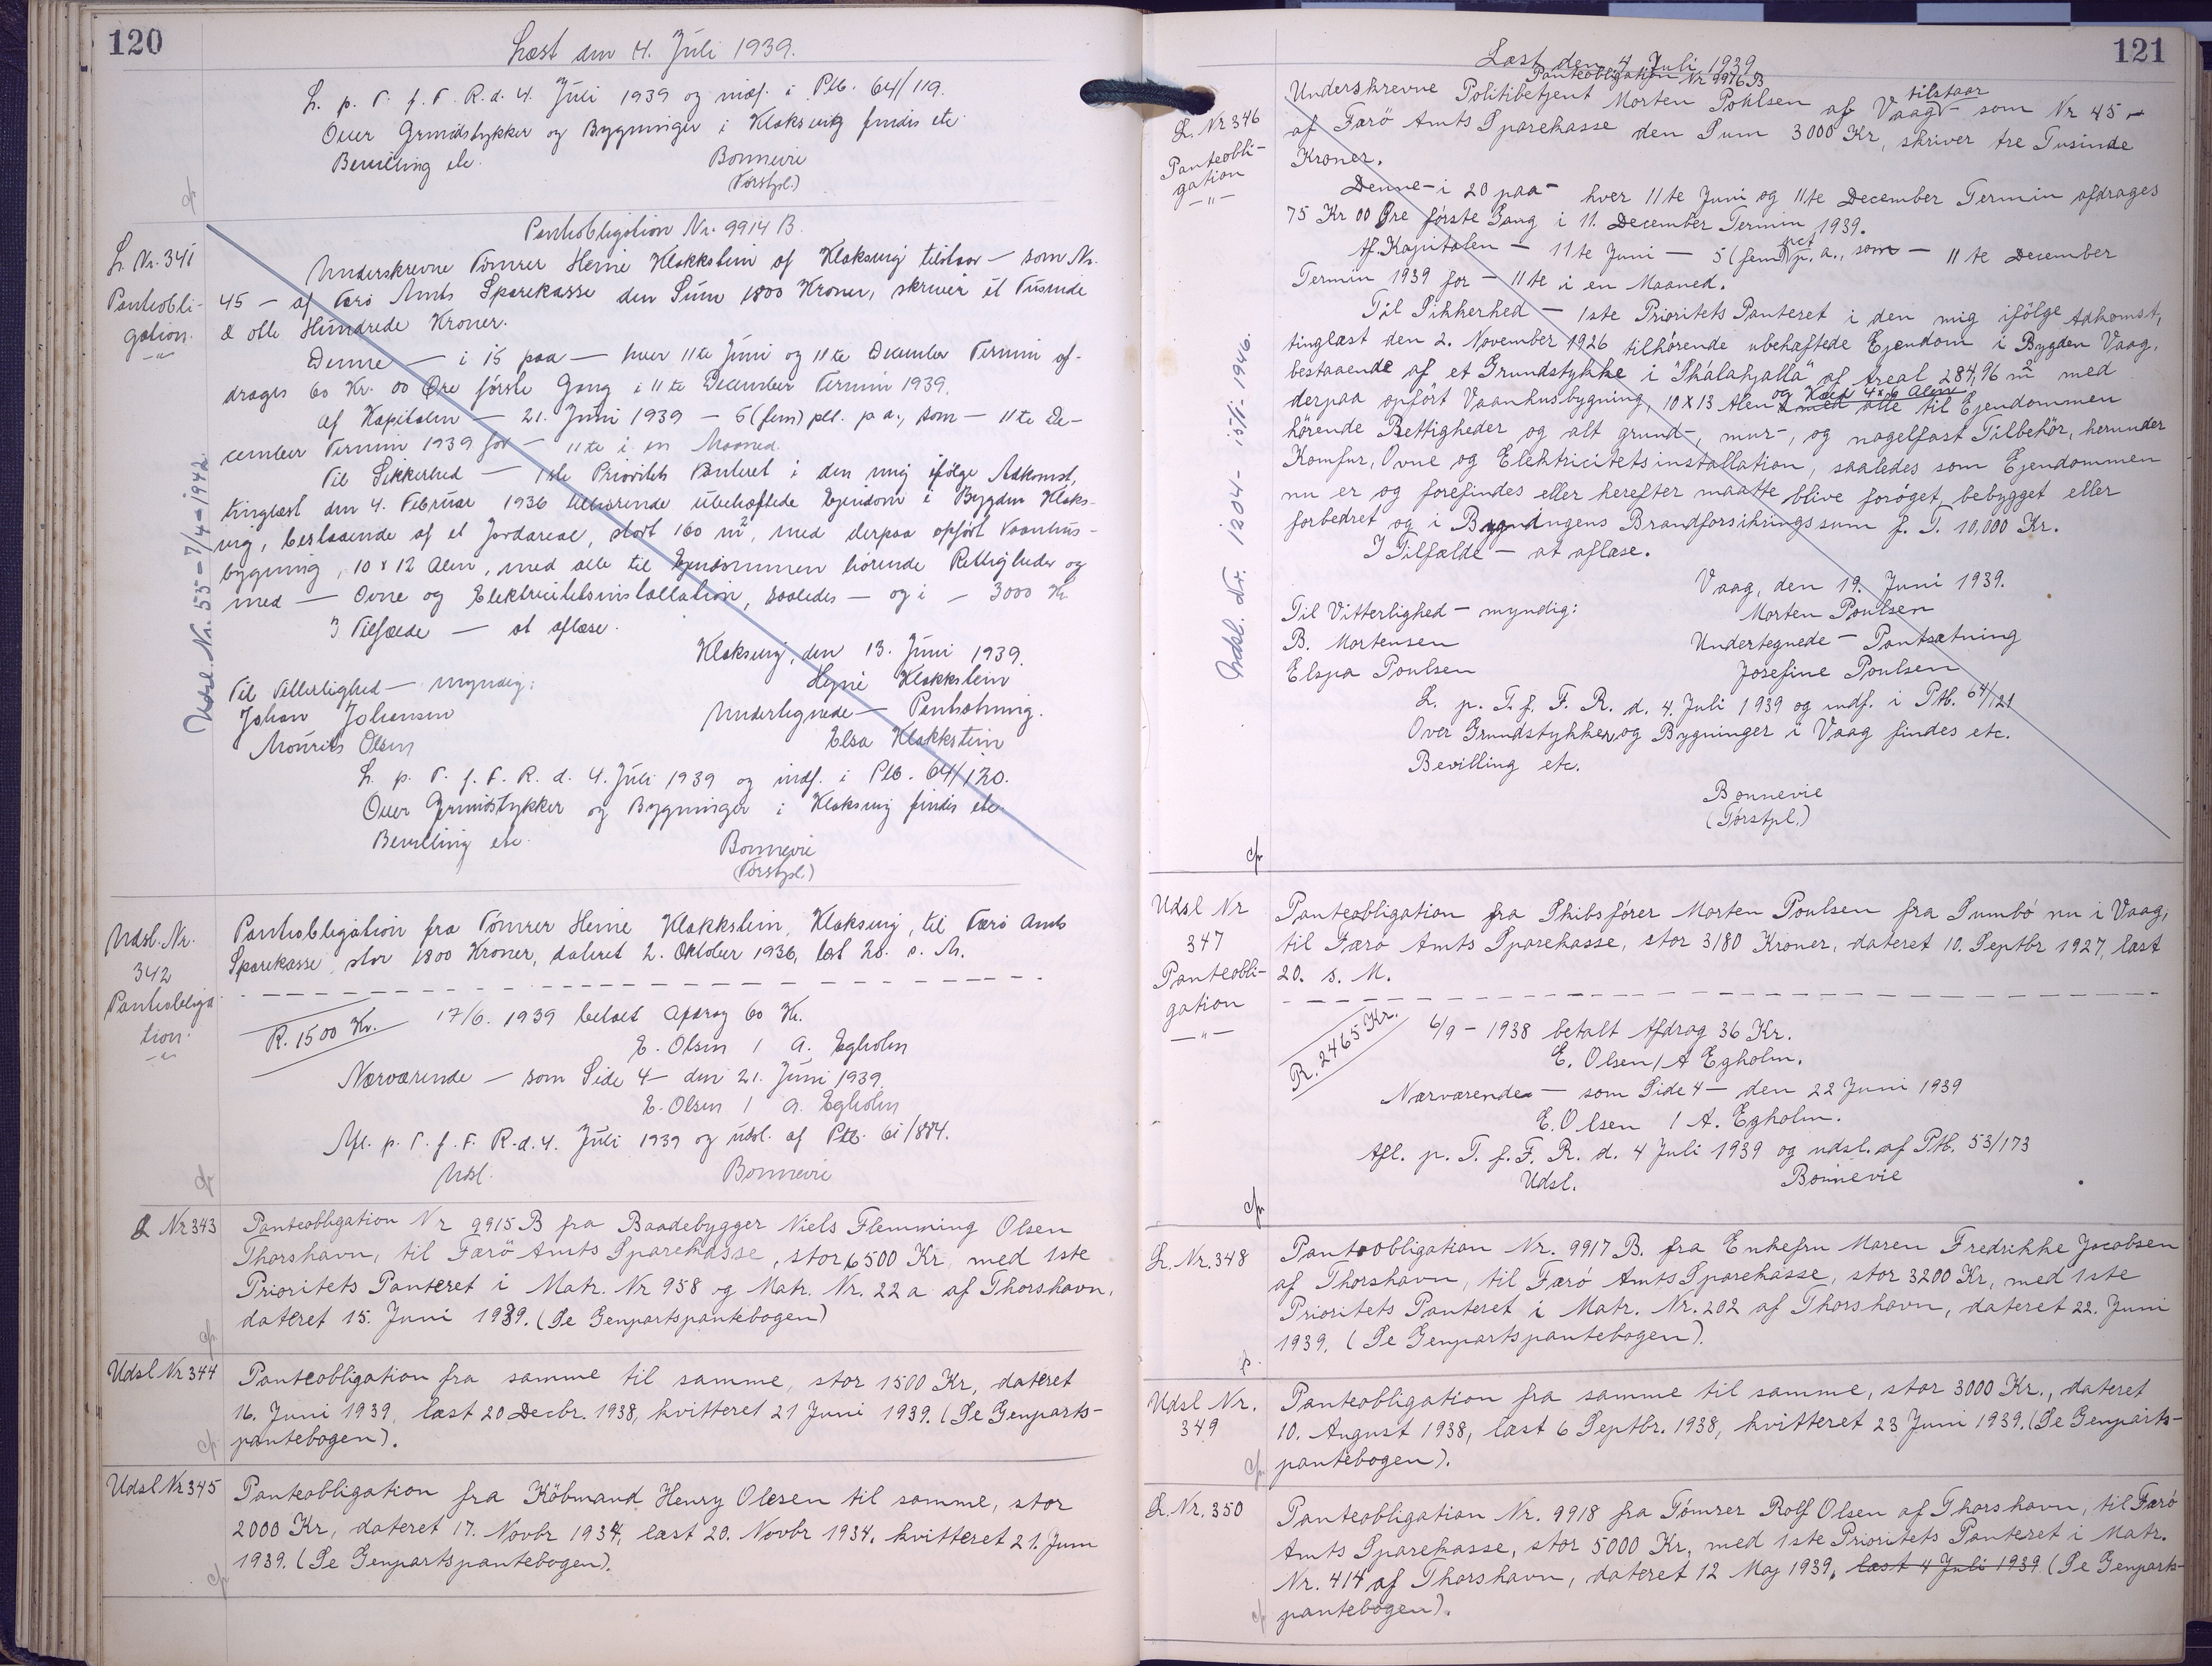 120
Læst den 4. Juli 1939.
L. p. T. f. F. R. d. 4. Juli 1939 og indf. i Ptb. 64/119.
Over Grundstykker og Bygninger i Klaksvig findes etc.
Bevilling etc.
Bonnevie
(Torstpl.)
L. Nr. 341
Panteobli-
gation.
—"—
Udsl. Nr. 55 - 7/4 - 1942
Panteobligation Nr. 9914 B.
Underskrevne Tömrer Heine Klakkstein af Klaksvig tilstaar — som Nr.
45 — af Færö Amts Sparekasse den Sum 1800 Kroner, skriver et Tusinde
& otte Hundrede Kroner.
Denne — i 15 paa — hver 11te Juni og 11te December Termin af-
drages 60 Kr. 00 Øre förste Gang i 11te December Termin 1939.
Af Kapitalen — 21. Juni 1939 — 5 (fem) pct. p. a., som — 11te De-
cember Termin 1939 for — 11te i en Maaned.
Til Sikkerhed — 1ste Prioritets Panteret i den mig ifölge Adkomst,
tinglæst den 4. Februar 1936 tilhörende ubehæftede Ejendom i Bygden Klaks-
vig, bestaaende af et Jordareal, stort 160 m², med derpaa opfört Vaanhus-
bygning, 10 x 12 Alen, med alle til Ejendommen hörende Rettigheder og
med — Ovne og Elektricitetsinstallation, saaledes — og i — 3000 Kr
I Tilfælde — at aflæse.
Klaksvig, den 13. Juni 1939.
Til Vitterlighed — myndig:
Heine Klakkstein
Johan Johansen
Undertegnede — Pantsætning.
Mourits Olsen
Elsa Klakkstein
L. p. T. f. F. R. d. 4. Juli 1939 og indf. i Ptb. 64/120.
Over Grundstykker og Bygninger i Klaksvig findes etc.
Bevilling etc.
Bonnevie
(Torstpl.)
Udsl. Nr.
342
Panteobliga
tion.
—"—
Panteobligation fra Tömrer Heine Klakkstein, Klaksvig, til Færö Amts
Sparekasse, stor 1800 Kroner, dateret 2. Oktober 1936, læst 20. s. M.
R. 1500 Kr.
17/6. 1939 betalt Afdrag 60 Kr.
E. Olsen / A. Egholm
Nærværende — som Side 4 — den 21. Juni 1939.
E. Olsen / A. Egholm
Afl. p. T. f. F. R. d. 4. Juli 1939 og udsl. af Ptb. 61/884.
Udsl.
Bonnevie
L Nr 343
Panteobligation Nr 9915 B fra Baadebygger Niels Flemming Olsen
Thorshavn, til Færö Amts Sparekasse, stor 6500 Kr, med 1ste
Prioritets Panteret i Matr. Nr 958 og Matr. Nr. 22a af Thorshavn,
dateret 15. Juni 1939. (Se Genpartspantebogen)
Udsl Nr 344
Panteobligation fra samme til samme, stor 1500 Kr, dateret
16. Juni 1939, læst 20 Decbr. 1938, kvitteret 21 Juni 1939. (Se Genparts-
pantebogen).
Udsl Nr 345
Panteobligation fra Köbmand Henry Olesen til samme, stor
2000 Kr, dateret 17. Novbr 1934, læst 20. Novbr 1934, kvitteret 21. Juni
1939. (Se Genpartspantebogen).
121
Læst den 4 Juli 1939
Panteobligation Nr 9916 B
L. Nr 346
Panteobli-
gation
—"—
Udsl. Nr. 1204 - 15/1 - 1946.
Underskrevne Politibetjent Morten Poulsen af Vaag tilstaar — som Nr 45 —
af Færö Amts Sparekasse den Sum 3000 Kr, skriver tre Tusinde
Kroner.
Denne — i 20 paa — hver 11te Juni og 11te December Termin afdrages
75 Kr 00 Øre förste Gang i 11. December Termin 1939.
Af Kapitalen — 11te Juni — 5 (fem) pct p. a., som — 11te December
Termin 1939 for — 11te i en Maaned.
Til Sikkerhed — 1ste Prioritets Panteret i den mig ifölge Adkomst,
tinglæst den 2. November 1926 tilhörende ubehæftede Ejendom i Bygden Vaag,
bestaaende af et Grundstykke i "Skálahjalla" af Areal 284,96 m² med
derpaa opfört Vaanhusbygning, 10 x 13 Alen og Kvist 4x6 Alen med alle til Ejendommen
hörende Rettigheder og alt grund-, mur-, og nagelfast Tilbehör, herunder
Komfur, Ovne og Elektricitetsinstallation, saaledes som Ejendommen
nu er og forefindes eller herefter maatte blive foröget, bebygget eller
forbedret og i Bygningens Brandforsikringssum f. T. 10,000 Kr.
I Tilfælde — at aflæse.
Vaag, den 19. Juni 1939.
Til Vitterlighed — myndig:
Morten Poulsen
B. Mortensen
Undertegnede — Pantsætning
Elspa Poulsen
Josefine Poulsen
L. p. T. f. F. R. d. 4. Juli 1939 og indf. i Ptb. 64/121
Over Grundstykker og Bygninger i Vaag findes etc.
Bevilling etc.
Bonnevie
(Torstpl.)
Udsl Nr
347
Panteobli-
gation
—"—
Panteobligation fra Skibsförer Morten Poulsen fra Sumbö nu i Vaag,
til Færö Amts Sparekasse, stor 3180 Kroner, dateret 10. Septbr 1927, læst
20. s. M.
R. 2465 Kr.
6/9 - 1938 betalt Afdrag 36 Kr.
E. Olsen / A Egholm.
Nærværende — som Side 4 — den 22 Juni 1939
E. Olsen / A. Egholm.
Afl. p. T. f. F. R. d. 4 Juli 1939 og udsl. af Ptb. 53/173
Udsl.
Bonnevie
L. Nr. 348
Panteobligation Nr. 9917 B. fra Enkefru Maren Fredrikke Jacobsen
af Thorshavn, til Færö Amts Sparekasse, stor 3200 Kr, med 1ste
Prioritets Panteret i Matr. Nr. 202 af Thorshavn, dateret 22. Juni
1939. (Se Genpartspantebogen).
Udsl Nr.
349
Panteobligation fra samme til samme, stor 3000 Kr., dateret
10. August 1938, læst 6 Septbr. 1938, kvitteret 23 Juni 1939. (Se Genparts-
pantebogen).
L. Nr. 350
Panteobligation Nr. 9918 fra Tömrer Rolf Olsen af Thorshavn, til Færö
Amts Sparekasse, stor 5000 Kr, med 1ste Prioritets Panteret i Matr.
Nr. 414 af Thorshavn, dateret 12 Maj 1939, læst 4 Juli 1939 (Se Genparts-
pantebogen).